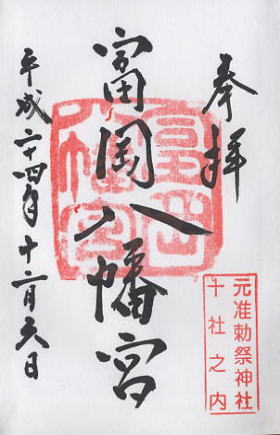 奉拝
富岡八幡宮
平成二十四年十二月六日
富岡
八幡宮
元准勅祭神社
十社之内